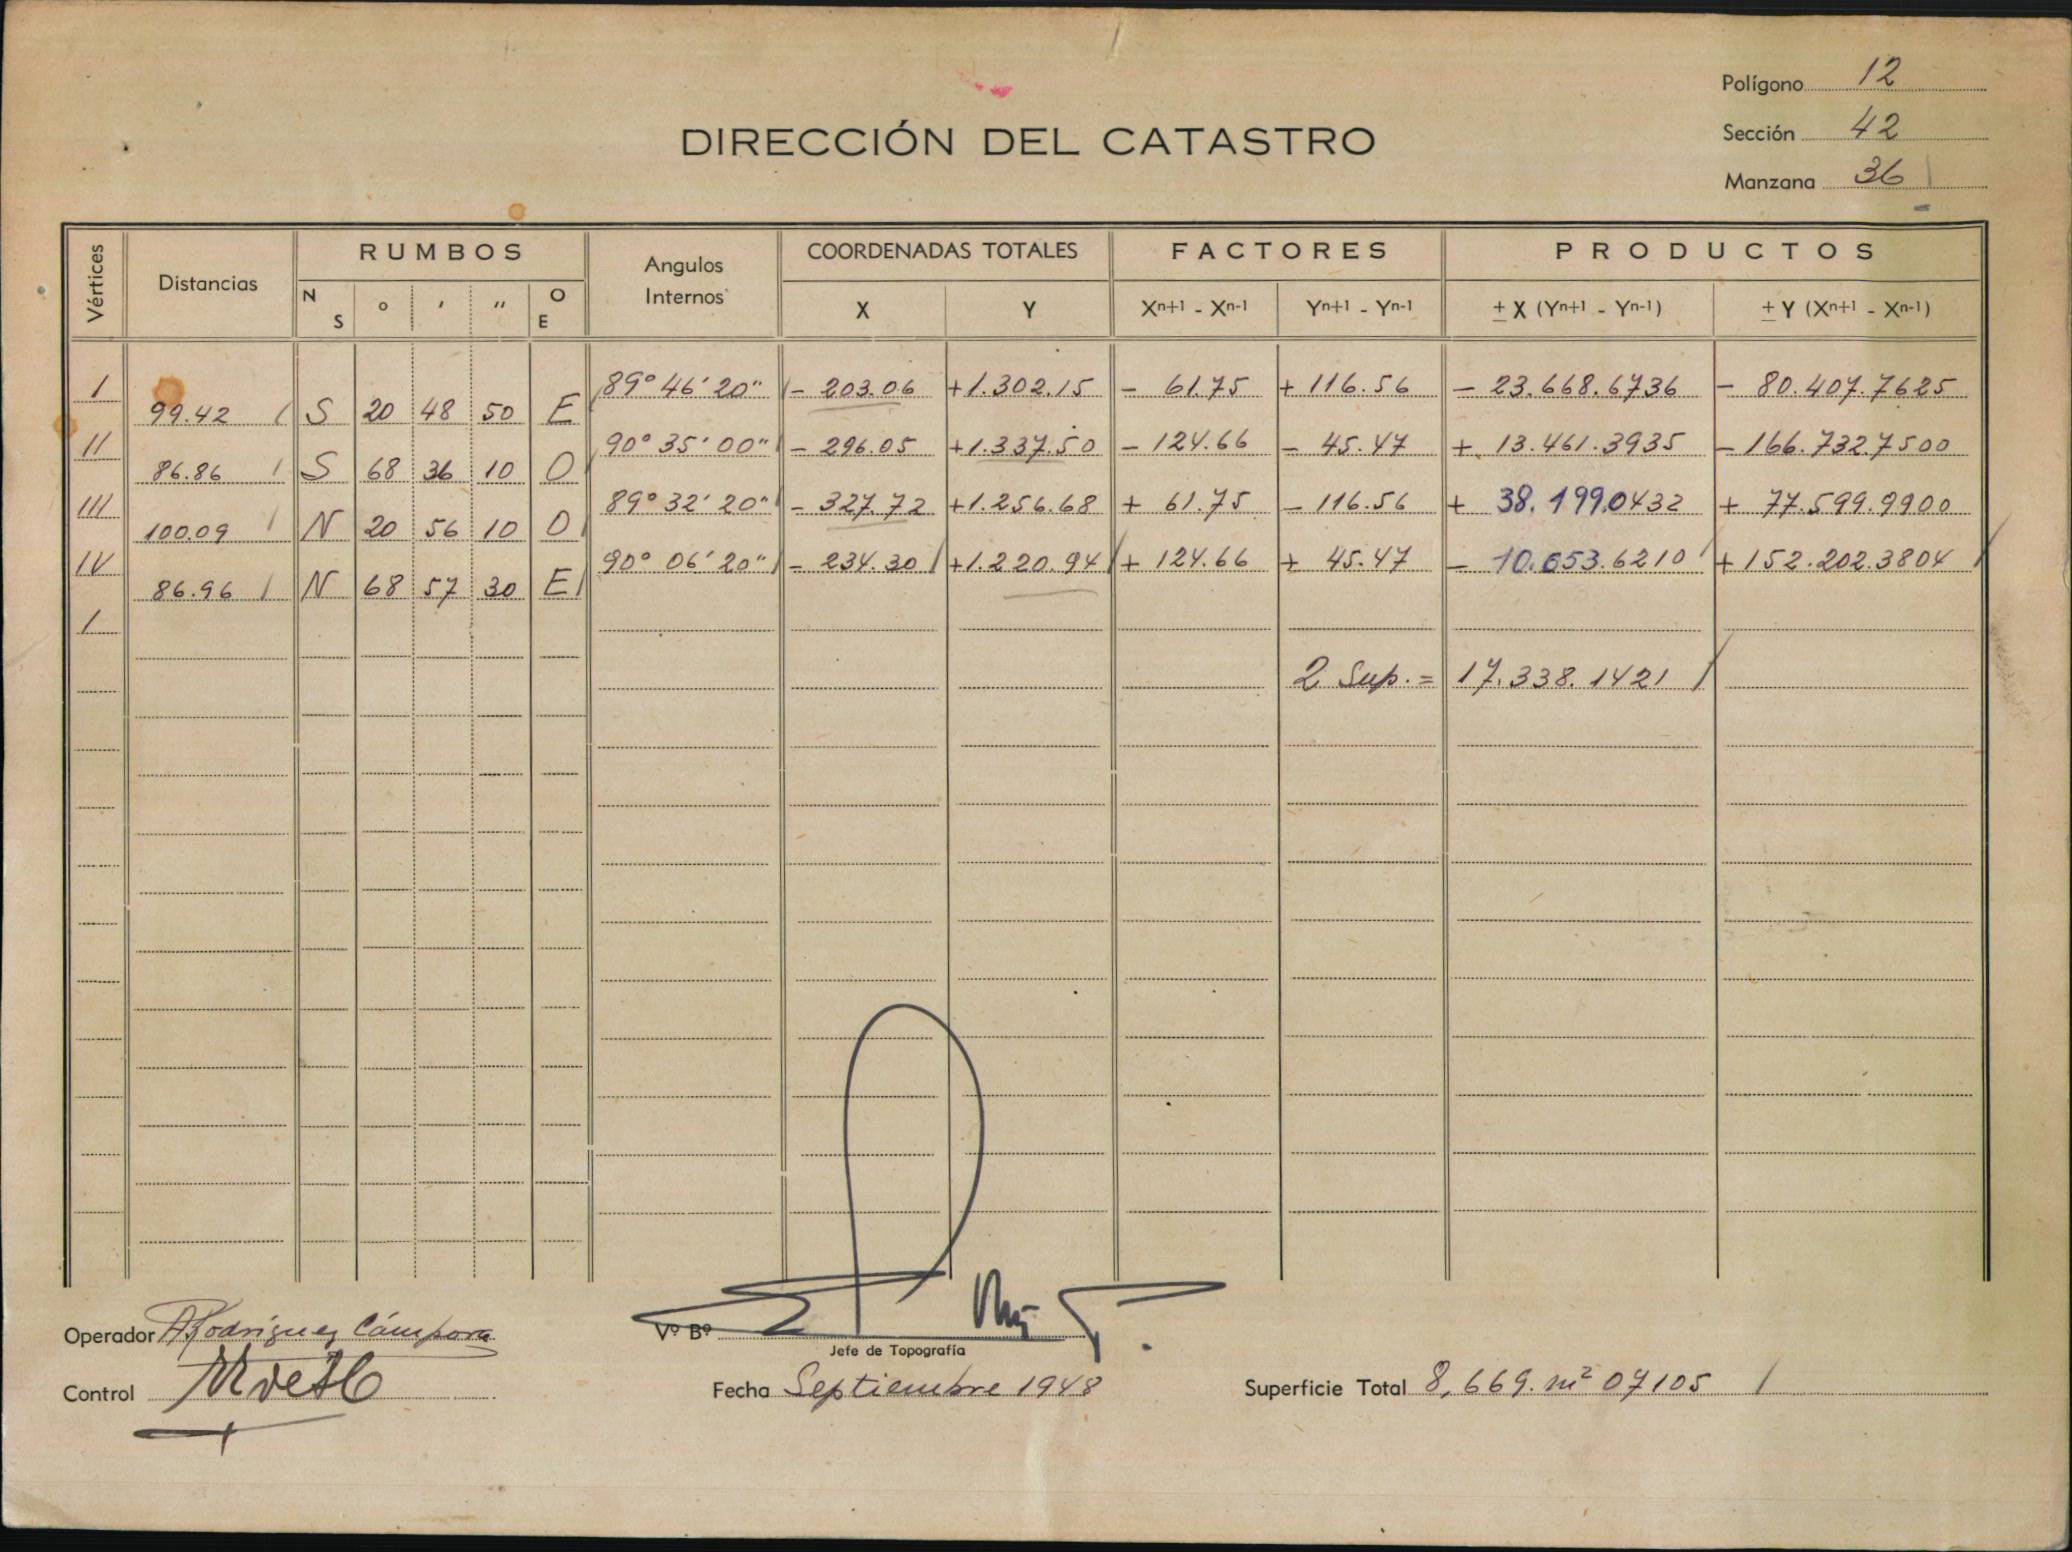 Polígono 12
Sección 42
Manzana 36
DIRECCIÓN DEL CATASTRO
Vértices Distancias RUMBOS Angulos Internos COORDENADAS TOTALES FACTORES PRODUCTOS
N S ° ' " O E X Y Xn+1 - Xn-1 Yn+1 - Yn-1 ± X (Yn+1 - Yn-1) ± Y (Xn+1 - Xn-1)
I 89° 46' 20" - 203.06 +1.302.15 - 61.75 + 116.56 - 23.668.6736 - 80.407.7625
99.42 S 20 48 50 E
II 90° 35' 00" - 296.05 +1.337.50 - 124.66 - 45.47 + 13.461.3935 - 166.732.7500
86.86 S 68 36 10 O
III 89° 32' 20" - 327.72 +1.256.68 + 61.75 - 116.56 + 38.199.0432 + 77.599.9900
100.09 N 20 56 10 O
IV 90° 06' 20" - 234.30 +1.220.94 + 124.66 + 45.47 - 10.653.6210 + 152.202.3804
86.96 N 68 57 30 E
I
2 Sup. = 17.338.1421
Operador Rodríguez Cámpora
Vº Bº
Jefe de Topografía
Control
Fecha Septiembre 1948
Superficie Total 8,669. m² 07105